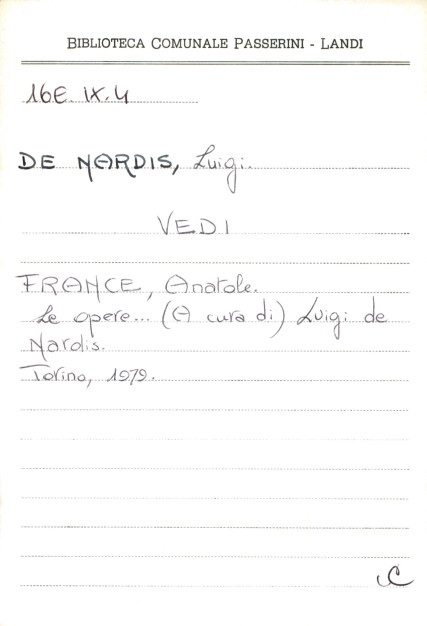 BIBLIOTECA COMUNALE PASSERINI - LANDI
16E. IX. 4
DE NARDIS, Luigi.
VEDI
FRANCE, Anatole.
Le opere... (A cura di) Luigi de
Nardis.
Torino, 1979.